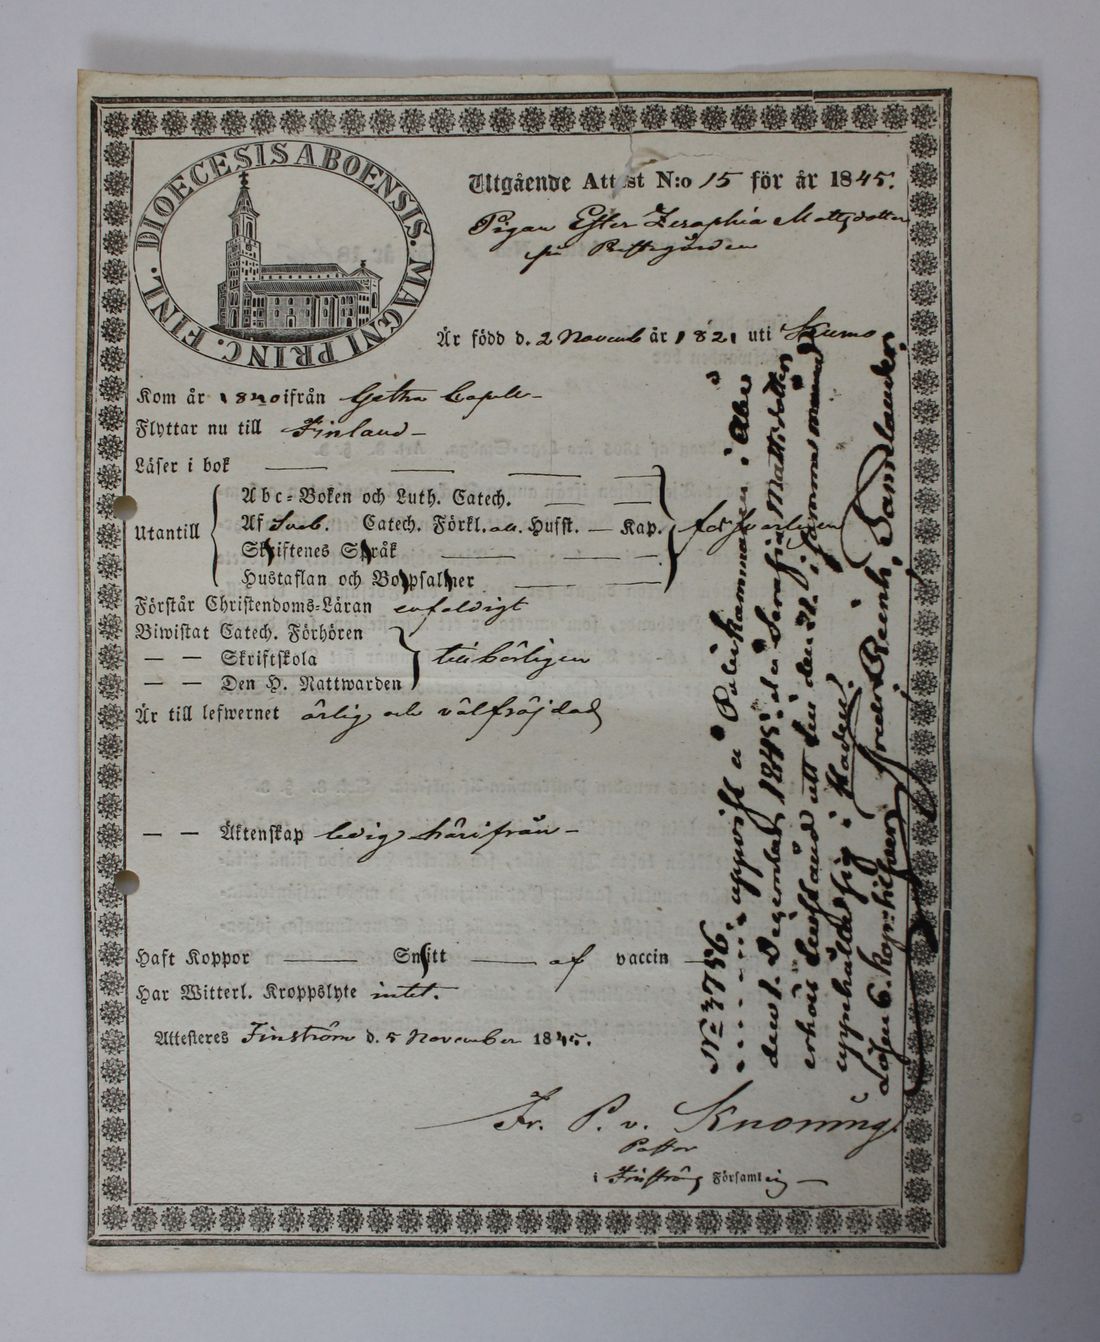 DIOECESIS ABOENSIS. MAGNI PRINC. FINL.
Utgående Attest N:o 15 för år 1845.
Pigan Ester Zeraphia Mattsdotter
på Prestgården
Är född d. 2 Novemb år 1821 uti Kumo
Kom år 1840 ifrån Getha Capell
Flyttar nu till Finland
Läser i bok
Abc-Boken och Luth. Catech.
Utantill Af Sveb. Catech. Förkl. och Husst. — Kap. försvarligen
Skriftenes Språk
Hustaflan och Botpsalmer
Förstår Christendoms-Läran enfaldigt
Biwistat Catech. Förhören
— — Skriftskola tillbörligen
— — Den H. Nattwarden
Är till lefwernet ärlig och välfräjdad
— — Äktenskap ledig härifrån
Haft Koppor — Snitt — af vaccin —
Har Witterl. Kroppslyte intet.
Attesteres Finström d. 5 November 1845.
Fr. P. v. Knorring
Pastor
i Finström Församling
No 3756.
uppvist å Poliskammaren i Åbo
den 1. December 1845. då Serafia Mattsdotter
erhöll Lofssedel att till den 21. i samma månad
uppehålla sig i staden.
Lösen 6. kop. silfver. Fredr. Reinh. Sandlander.